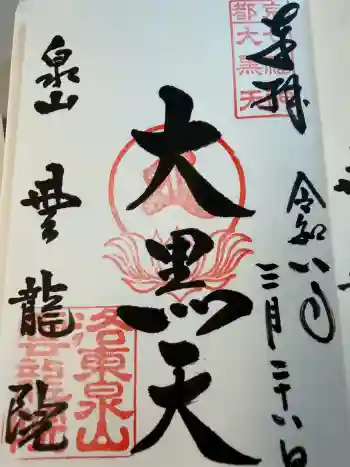 奉拝
令和八年
三月二十八日
大黒天
泉山 雲龍院
都大黒天
洛東泉山